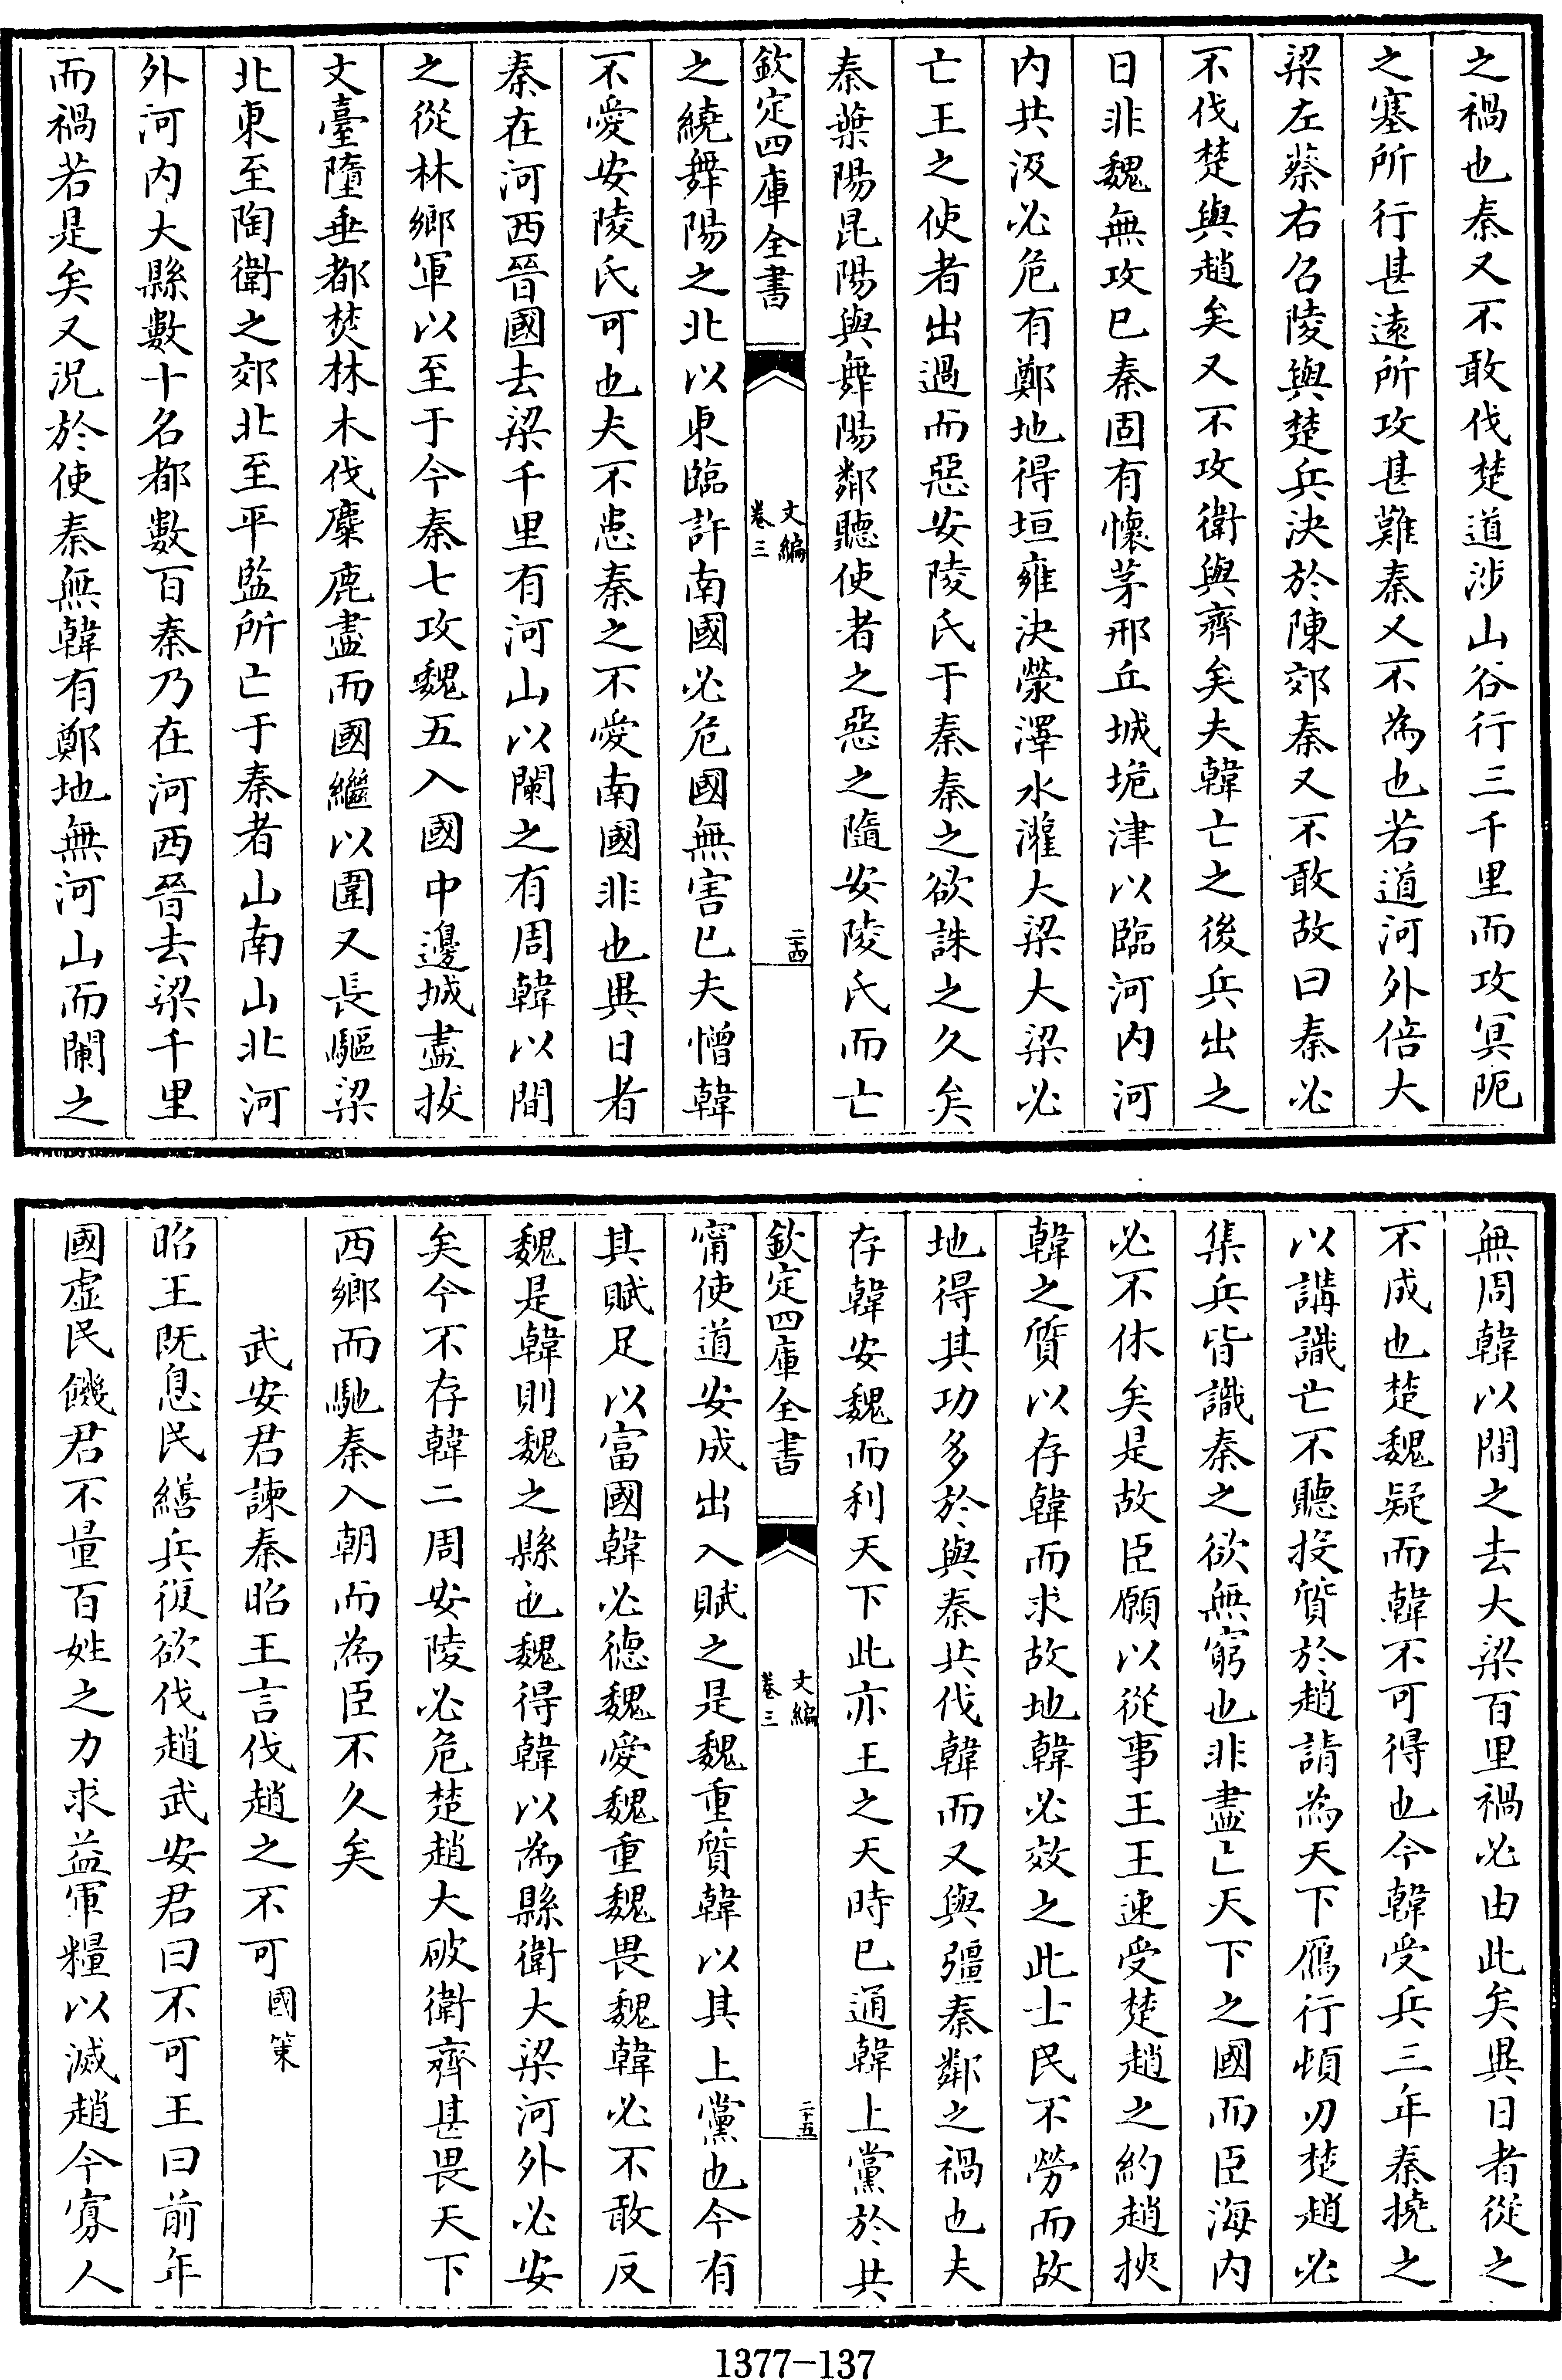 之禍也秦又不敢伐楚道涉山谷行三千里而攻冥阨
之塞所行甚遠所攻甚難秦又不為也若道河外倍大
梁左蔡右召陵與楚兵決於陳郊秦又不敢故曰秦必
不伐楚與趙矣又不攻衛與齊矣夫韓亡之後兵出之
日非魏無攻巳秦固有懷茅邢丘城垝津以臨河內河
内共汲必危有鄭地得垣雍決滎澤水灌大梁大梁必
亡王之使者出過而惡安陵氏于秦秦之欲誅之久矣
秦葉陽昆陽與舞陽鄰聽使者之惡之隨安陵氏而亡
欽定四庫全書
文編
卷三
二十四
之繞舞陽之北以東臨許南國必危國無害巳夫憎韓
不愛安陵氏可也夫不患秦之不愛南國非也異日者
秦在河西晉國去梁千里有河山以闌之有周韓以間
之從林鄉軍以至于今秦七攻魏五入國中邊城盡拔
文臺墮垂都焚林木伐麋鹿盡而國繼以圍又長驅梁
北東至陶衛之郊北至平監所亡于秦者山南山北河
外河内大縣數十名都數百秦乃在河西晉去梁千里
而禍若是矣又況於使秦無韓有鄭地無河山而闌之
無周韓以間之去大梁百里禍必由此矣異日者從之
不成也楚魏疑而韓不可得也今韓受兵三年秦撓之
以講識亡不聽投質於趙請為天下鴈行頓刃楚趙必
集兵皆識秦之欲無窮也非盡亡天下之國而臣海内
必不休矣是故臣願以從事王王速受楚趙之約趙挾
韓之質以存韓而求故地韓必效之此士民不勞而故
地得其功多於與秦共伐韓而又與彊秦鄰之禍也夫
存韓安魏而利天下此亦王之天時巳通韓上黨於共
欽定四庫全書
文編
卷三
二十五
甯使道安成出入賦之是魏重質韓以其上黨也今有
其賦足以富國韓必德魏愛魏重魏畏魏韓必不敢反
魏是韓則魏之縣也魏得韓以為縣衛大梁河外必安
矣今不存韓二周安陵必危楚趙大破衛齊甚畏天下
西鄉而馳秦入朝而為臣不久矣
武安君諫秦昭王言伐趙之不可國策
昭王既息民繕兵復欲伐趙武安君曰不可王曰前年
國虛民饑君不量百姓之力求益軍糧以滅趙今寡人
1377-137